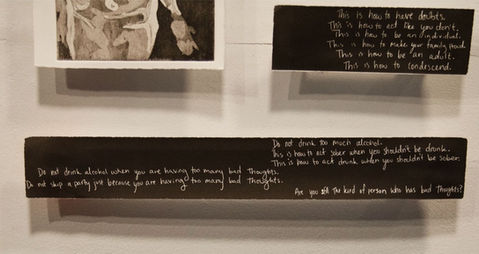 This is how to have doubts.
This is how to act like you don't.
This is how to be an individual.
This is how to make your family proud.
This is how to be an adult.
This is how to condescend.
Do not drink too much alcohol.
This is how to act sober when you shouldn't be drunk.
This is how to act drunk when you shouldn't be sober.
Do not drink alcohol when you are having too many bad Thoughts.
Do not skip a party just because you are having too many bad Thoughts.
Are you still the kind of person who has bad Thoughts?